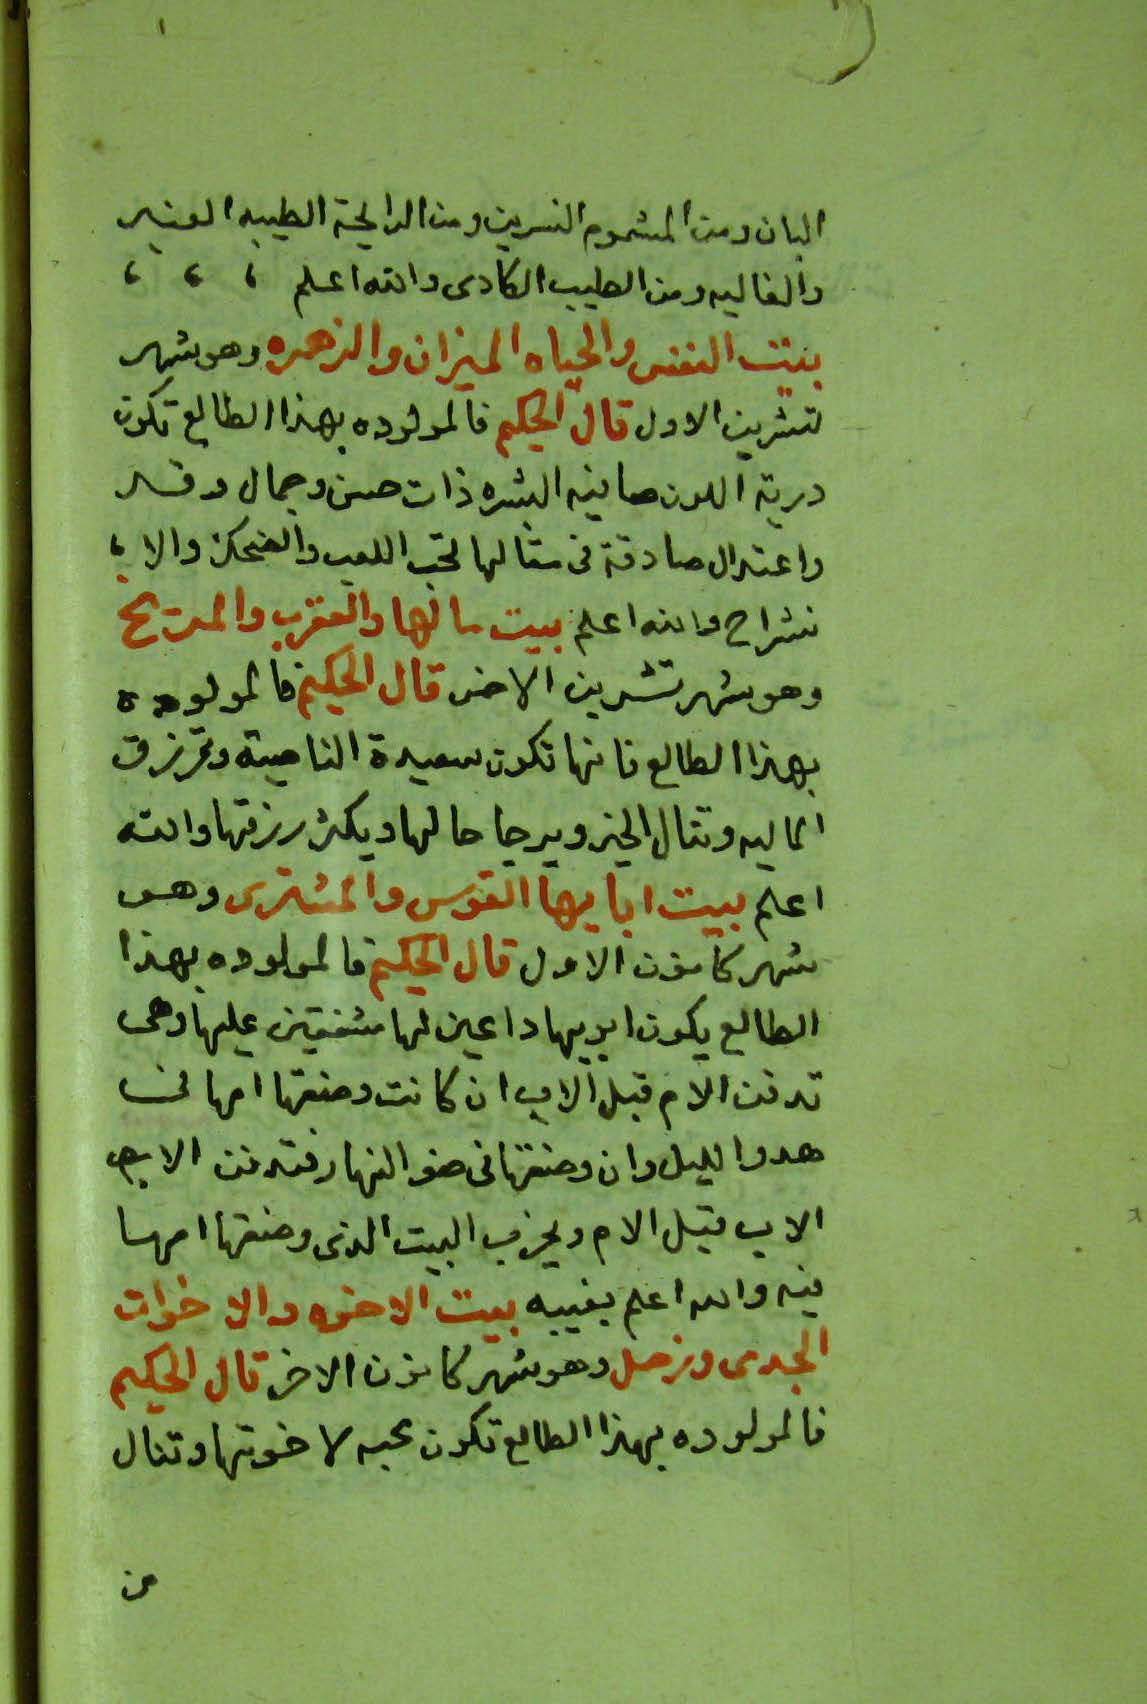 البان ومن المشموم النسرين ومن الرايحة الطيبه العنبر
والغاليه ومن الطيب الكادى والله اعلم
بيت النفس والحياه الميزان والزهره وهو شهر
تشرين الاول قال الحكيم فالمولوده بهذا الطالع تكون
درية اللون صافيه البشره ذات حسن وجمال وقد
واعتدال صادقة فى مقالها تحب اللعب والضحك والا
نشراح والله اعلم بيت مالها والعقرب والمريخ
وهو شهر تشرين الاخر قال الحكيم فالمولوده
بهذا الطالع فانها تكون سعيدة الناصية وترزق
الماليه وتنال الخير ويرجا حالها ويكثر رزقها والله
اعلم بيت ابايها القوس والمشترى وهو
شهر كانون الاول قال الحكيم فالمولوده بهذا
الطالع يكون ابويها داعين لها مشفقين عليها وهى
تدفن الام قبل الاب ان كانت وضعتها امها فى
هدوا الليل وان وضعتها فى ضو النهار فتدفن الاب
الاب قبل الام ويخرب البيت الذى وضعتها امها
فيه والله اعلم بغيبه بيت الاخوه والاخوات
الجدى وزحل وهو شهر كانون الاخر قال الحكيم
فالمولوده بهذا الطالع تكون محبه لاخوتها وتنال
من